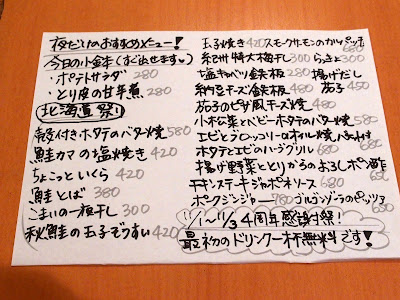 夜だけのおすすめメニュー!
今日の小鉢(すぐ出せます♥)
・ポテトサラダ 280
・とり皮の甘辛煮 280
北海道祭り
殻付きホタテのバター焼 580
鮭カマの塩焼き 420
ちょこっといくら 420
鮭とば 380
こまいの一夜干し 300
秋鮭の玉子ぞうすい 420
玉子焼き 420 スモークサーモンのカルパッチョ 680
紀州特大梅干し 300 らっきょ 300
塩キャベツ鉄板 280 揚げだし
納豆チーズ鉄板 480 茄子 450
茄子のピザ風チーズ焼 480
小松菜とベビーホタテのバター焼 580
エビとブロッコリーの
ホタテとエビのハーブグリル 680
揚げ野菜ととりからのおろしポン酢 650
チキンステーキジャポネソース 680
ポークジンジャー 780 ゴルゴンゾーラのピッツァ 680
11/1~11/3 4周年感謝祭!
最初のドリンク一杯無料です!